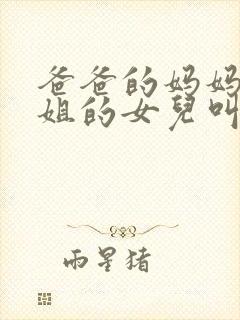 爸爸的妈妈
姐的女兒叫
雨星猪